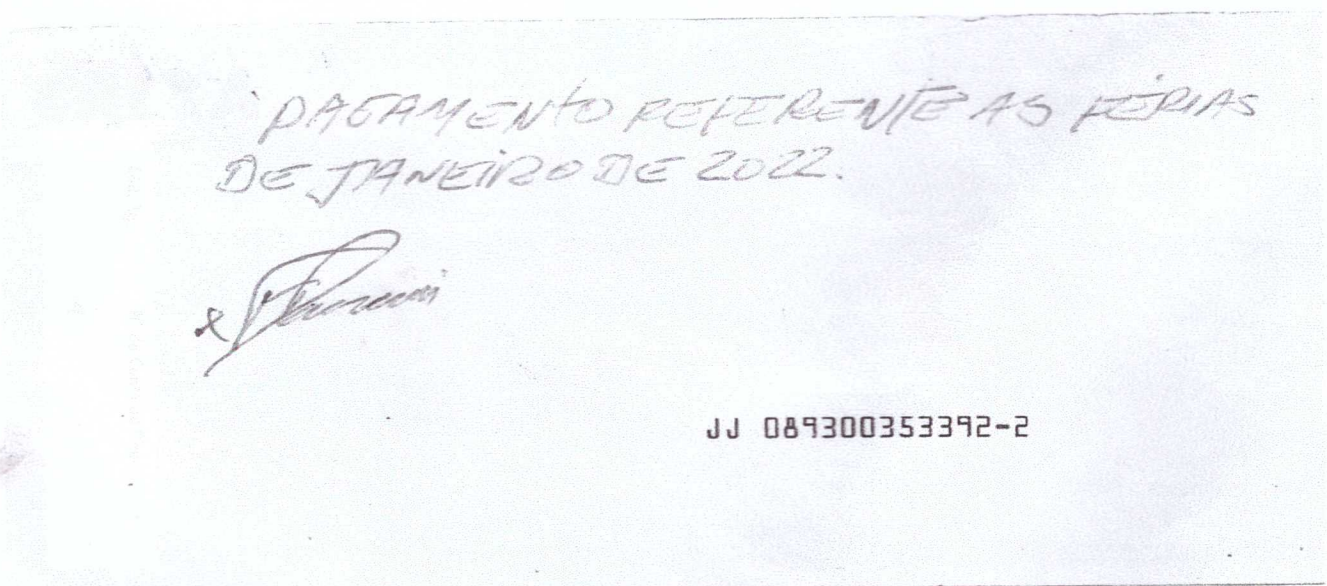 PAGAMENTO REFERENTE AS FÉRIAS
DE JANEIRO DE 2022.
JJ 089300353392-2